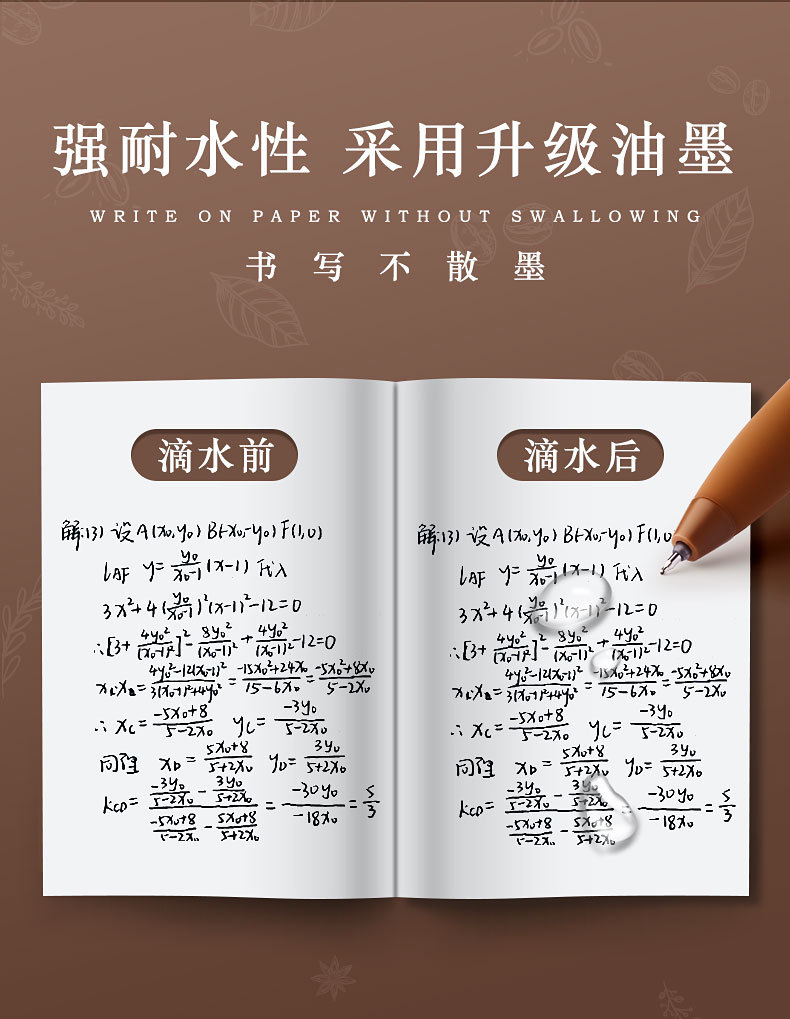 强耐水性 采用升级油墨
WRITE ON PAPER WITHOUT SWALLOWING
书写不散墨
滴水前
解:(3) 设A(x₀,y₀) B(-x₀,-y₀) F(1,0)
l AF y=y₀/(x₀-1) (x-1) 代入
3x²+4(y₀/(x₀-1))²(x-1)²-12=0
∴[3+4y₀²/(x₀-1)²]²-8y₀²/(x₀-1)²+4y₀²/(x₀-1)²-12=0
=(-15x₀²+24x₀)/(15-6x₀)=(-5x₀²+8x₀)/(5-2x₀)
∴ x_C=(-5x₀+8)/(5-2x₀) y_C=(-3y₀)/(5-2x₀)
同理 x_D=(5x₀+8)/(5+2x₀) y_D=3y₀/(5+2x₀)
k_CD=((-3y₀)/(5-2x₀)-3y₀/(5+2x₀))/((-5x₀+8)/(5-2x₀)-(5x₀+8)/(5+2x₀))=(-30y₀)/(-18x₀)=5/3
滴水后
解:(3) 设A(x₀,y₀) B(-x₀,-y₀) F(1,0
l AF y=y₀/(x₀-1) (x-1) 代入
3x²+4(y₀/(x₀-1))²(x-1)²-12=0
∴[3+4y₀²/(x₀-1)²]²-8y₀²/(x₀-1)²+4y₀²/(x₀-1)²-12=0
=(-15x₀²+24x₀)/(15-6x₀)=(-5x₀²+8x₀)/(5-2x₀)
∴ x_C=(-5x₀+8)/(5-2x₀) y_C=(-3y₀)/(5-2x₀)
同理 x_D=(5x₀+8)/(5+2x₀) y_D=3y₀/(5+2x₀)
k_CD=((-3y₀)/(5-2x₀)-3y₀/(5+2x₀))/((-5x₀+8)/(5-2x₀)-(5x₀+8)/(5+2x₀))=(-30y₀)/(-18x₀)=5/3